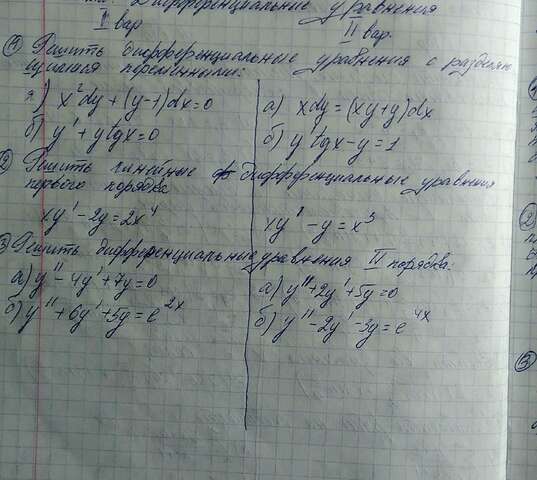 Дифференциальные уравнения
I вар.
II вар.
① Решить дифференциальные уравнения с разделяю
щимися переменными:
а) x²dy + (y-1)dx = 0
б) y' + ytgx = 0
а) xdy = (xy+y)dx
б) y'tgx - y = 1
② Решить линейные дифференциальные уравнения
первого порядка
xy' - 2y = 2x⁴
xy' - y = x³
③ Решить дифференциальные уравнения II порядка:
а) y'' - 4y' + 7y = 0
б) y'' + 6y' + 5y = e²ˣ
а) y'' + 2y' + 5y = 0
б) y'' - 2y' - 3y = e⁴ˣ
②
③